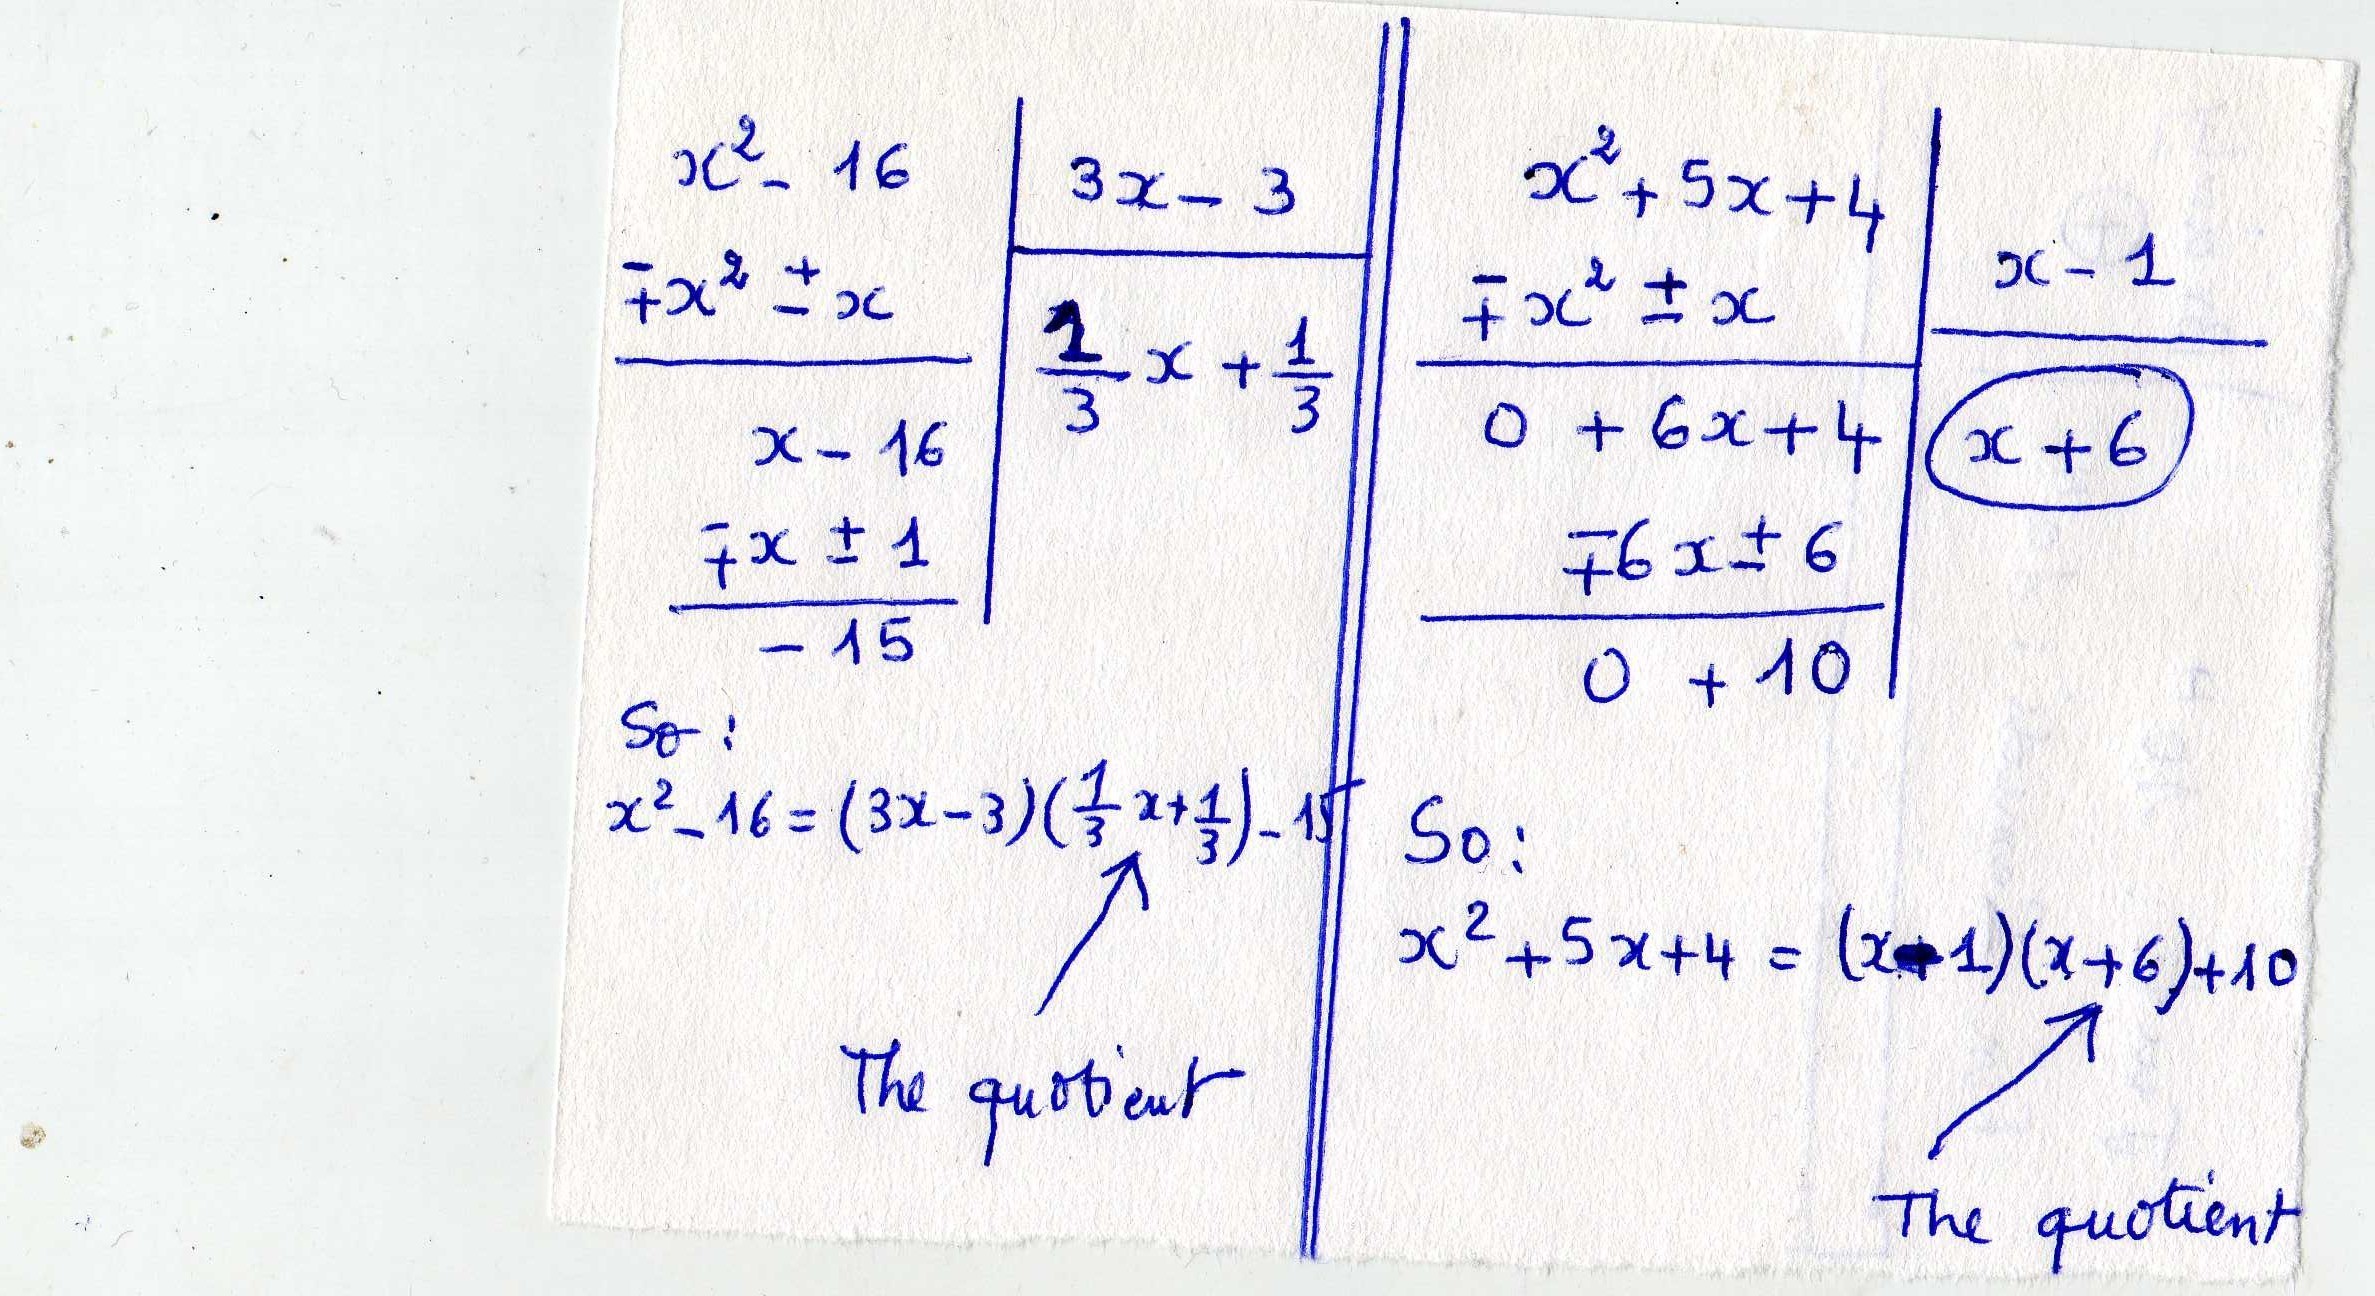 x² - 16 | 3x - 3
∓x² ± x
1/3 x + 1/3
x - 16
∓x ± 1
- 15
So:
x² - 16 = (3x - 3)(1/3 x + 1/3) - 15
The quotient
x² + 5x + 4 | x - 1
∓x² ± x
0 + 6x + 4 | x + 6
∓6x ± 6
0 + 10
So:
x² + 5x + 4 = (x - 1)(x + 6) + 10
The quotient